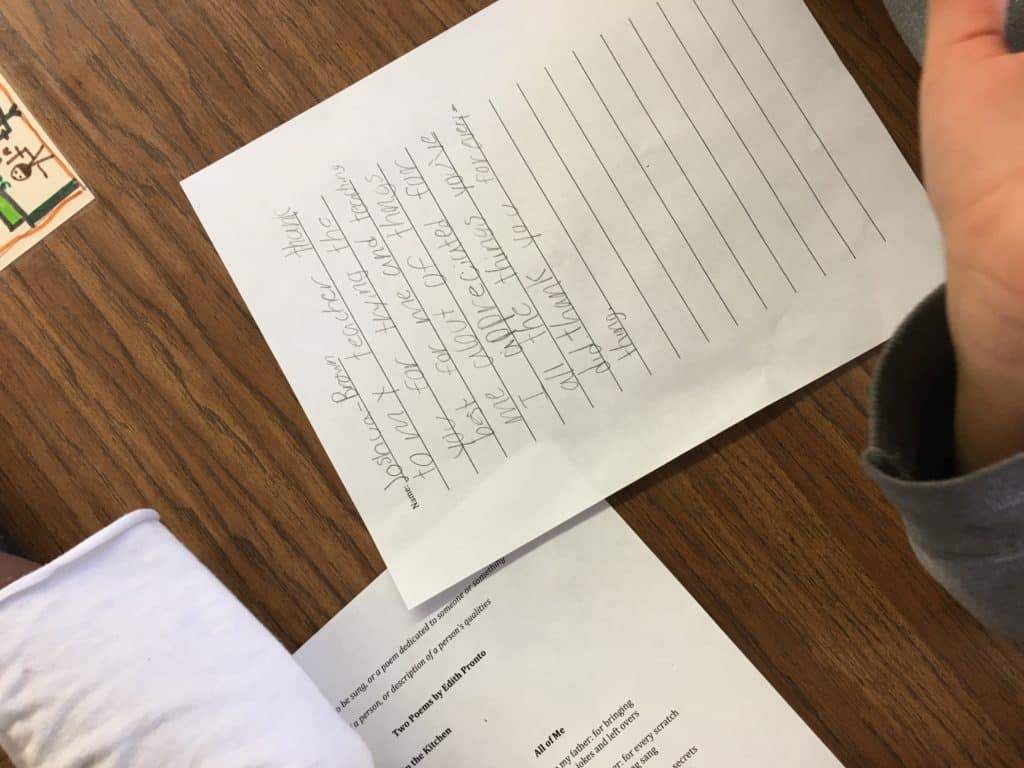 Name: Joshua-Bryan
to my teacher Thank
you for trying the
best for me and teaching
me about all the things
I appreciated for
all the things you've
did thank you for every
thing.
to be sung, or a poem dedicated to someone or something
a person, or description of a person's qualities
Two Poems by Edith Pronto
the Kitchen
All of Me
my father: for bringing
jokes and left overs
for every scratch
sang
secrets